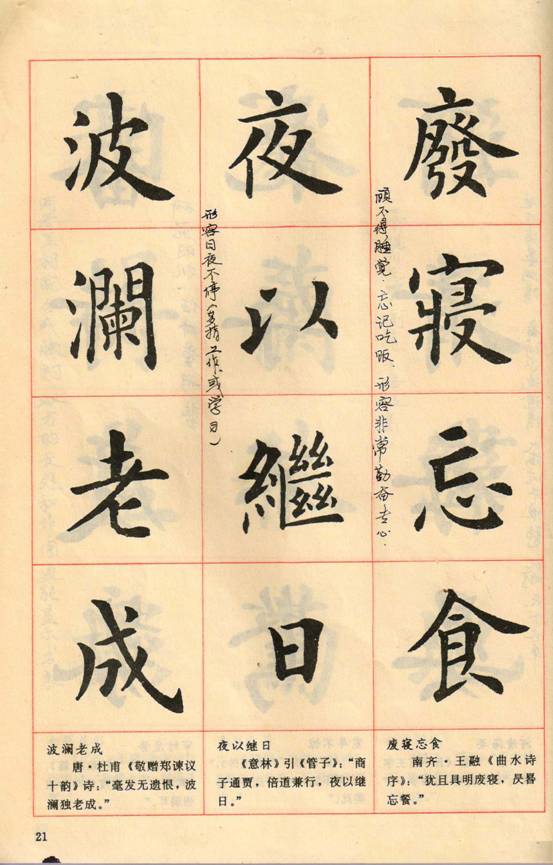 廢寢忘食
顾不得睡觉.忘记吃饭.形容非常勤奋专心.
夜以繼日
形容日夜不停(多指工作或学习)
波瀾老成
废寝忘食
南齐·王融《曲水诗
序》：“犹且具明废寝，昃晷
忘餐。”
夜以继日
《意林》引《管子》：“商
子通贾，倍道兼行，夜以继
日。”
波澜老成
唐·杜甫《敬赠郑谏议
十韵》诗：“毫发无遗恨，波
澜独老成。”
21